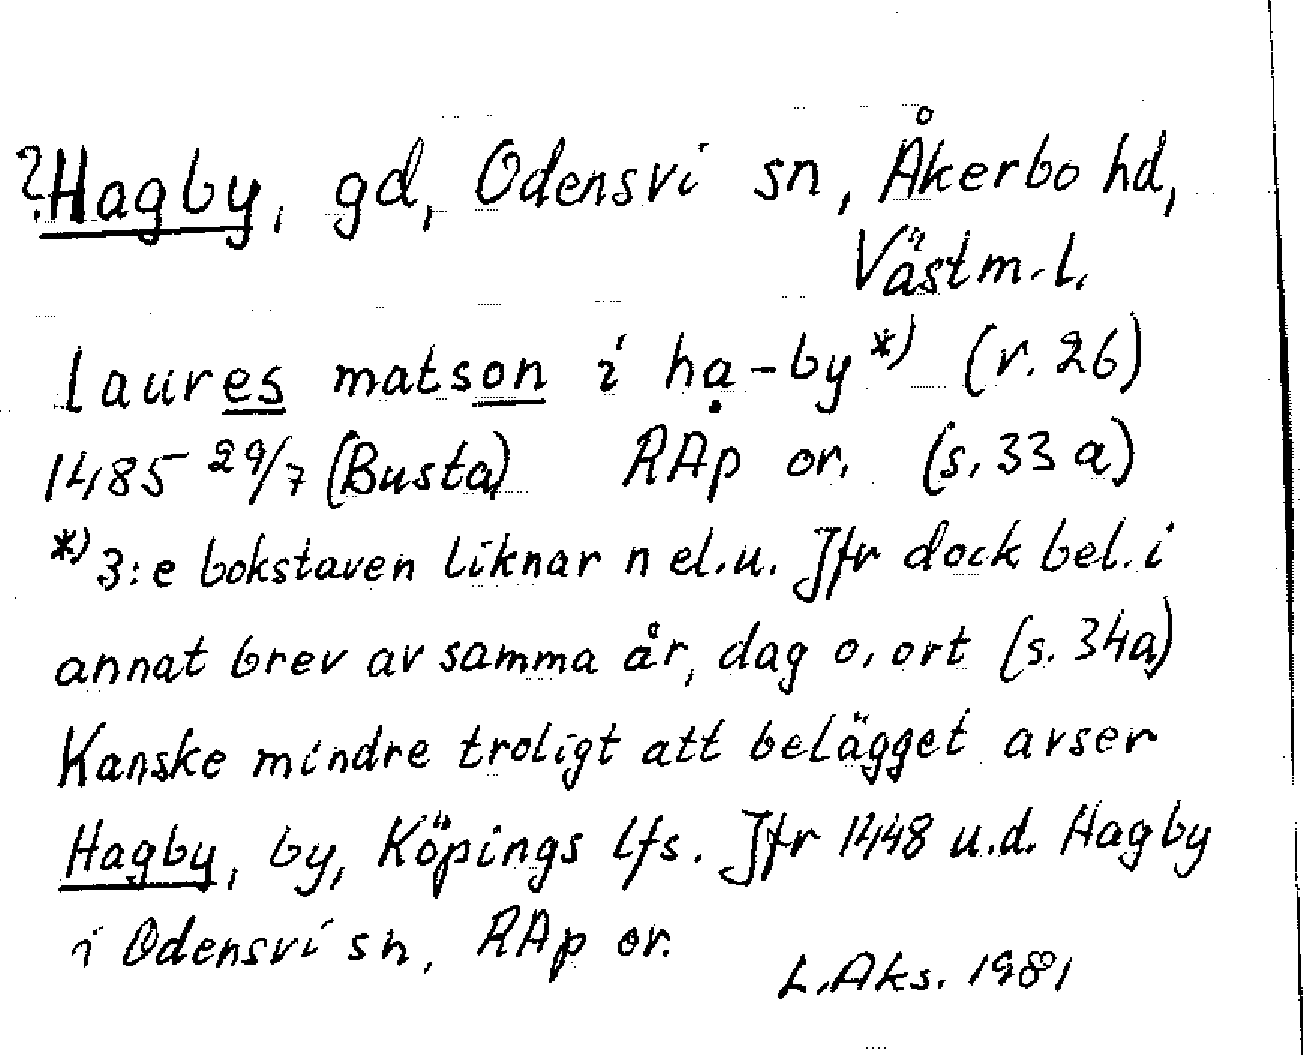 ?Hagby, gd, Odensvi sn, Åkerbo hd,
Västm. l.
laures matson i hạ-by*) (r. 26)
1485 29/7 (Busta) RAp or. (s. 33 a)
*) 3:e bokstaven liknar n el. u. Jfr dock bel. i
annat brev av samma år, dag o. ort (s. 34a)
Kanske mindre troligt att belägget avser
Hagby, by, Köpings lfs. Jfr 1448 u.d. Hagby
i Odensvi sn, RAp or.
L. Aks. 1981